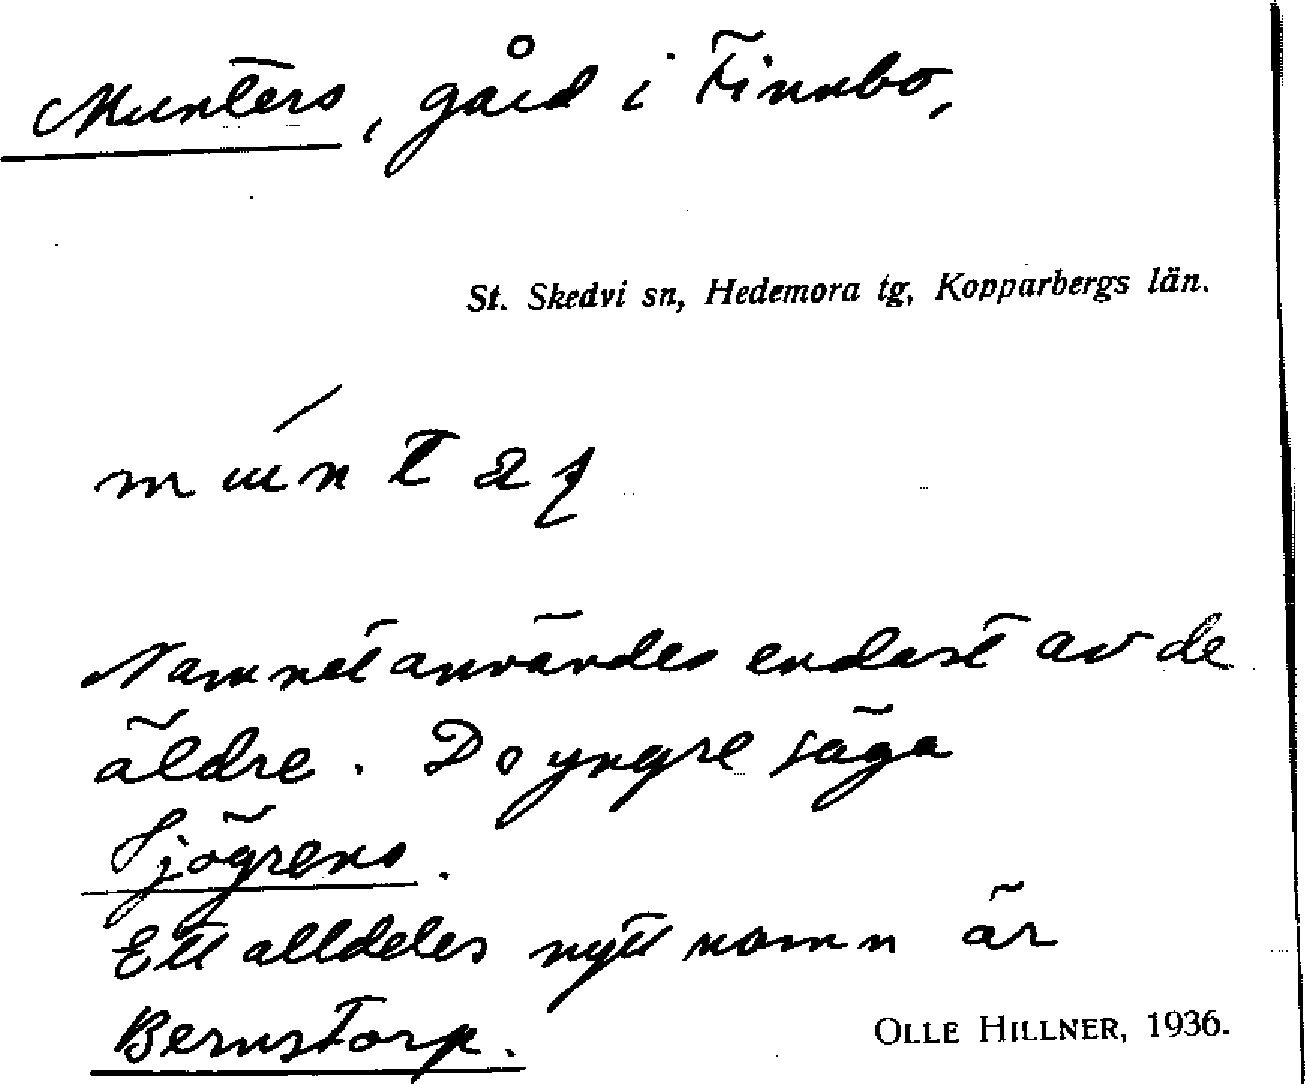 Munters, gård i Finnbo,
St. Skedvi sn, Hedemora tg, Kopparbergs län.
Namnet användes endast av de
äldre. De yngre säga
Sjögrens.
Ett alldeles nytt namn är
Bernstorp.
OLLE HILLNER, 1936.